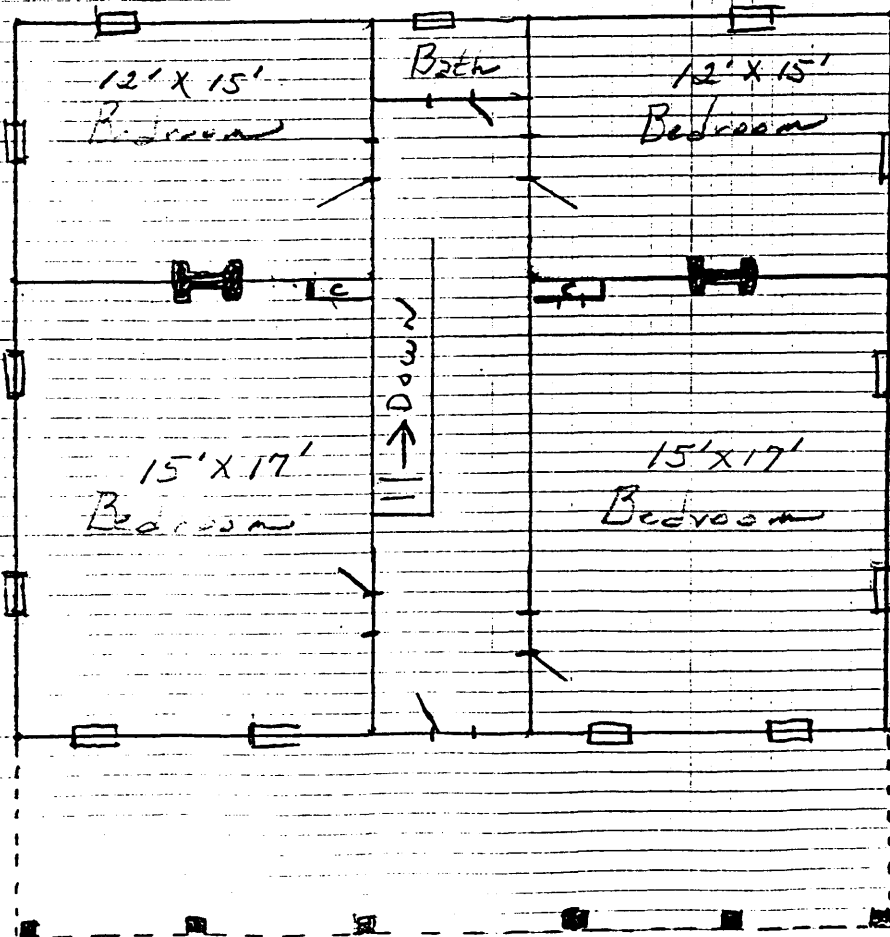 12' X 15'
Bedroom
Bath
12' X 15'
Bedroom
C
C
Down
15' X 17'
Bedroom
15' X 17'
Bedroom